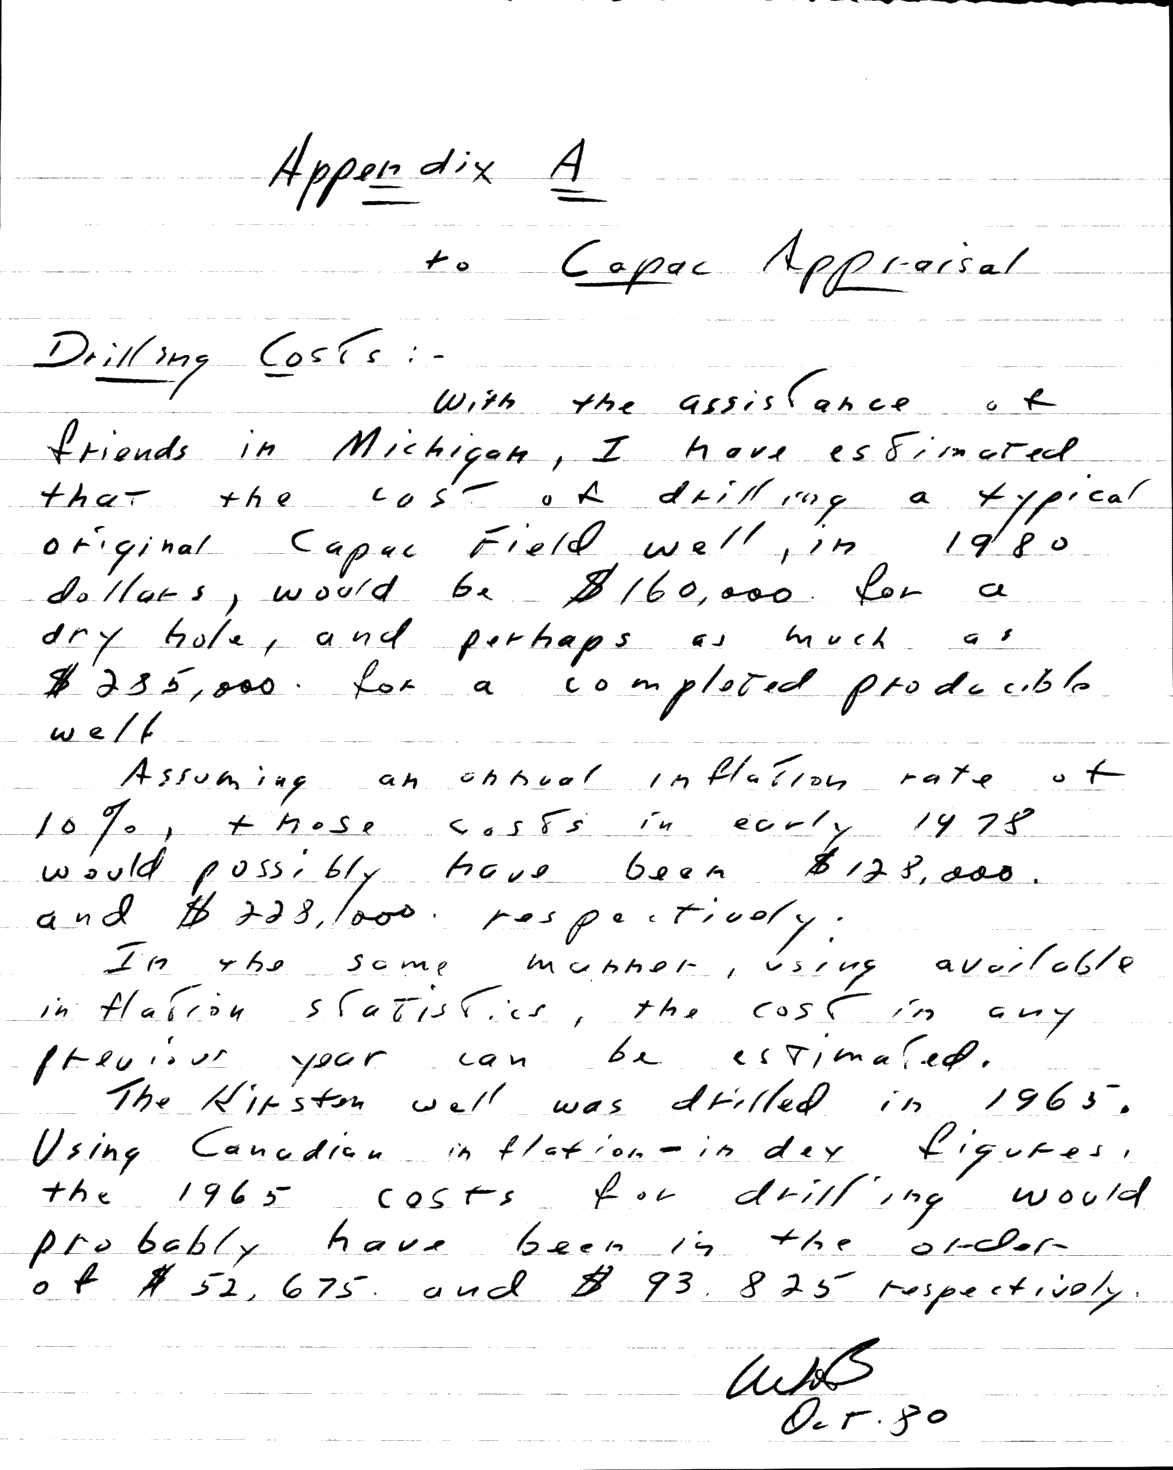 Appendix A
to Capac Appraisal
Drilling Costs :-
With the assistance of
friends in Michigan, I have estimated
that the cost of drilling a typical
original Capac Field well, in 1980
dollars, would be $160,000. for a
dry hole, and perhaps as much as
$285,000. for a completed producible
well.
Assuming an annual inflation rate of
10%, those costs in early 1978
would possibly have been $128,000.
and $228,000. respectively.
In the same manner, using available
inflation statistics, the cost in any
previous year can be estimated.
The Kirston well was drilled in 1965.
Using Canadian inflation-index figures,
the 1965 costs for drilling would
probably have been in the order
of $52,675. and $93.825 respectively.
Oct. 80